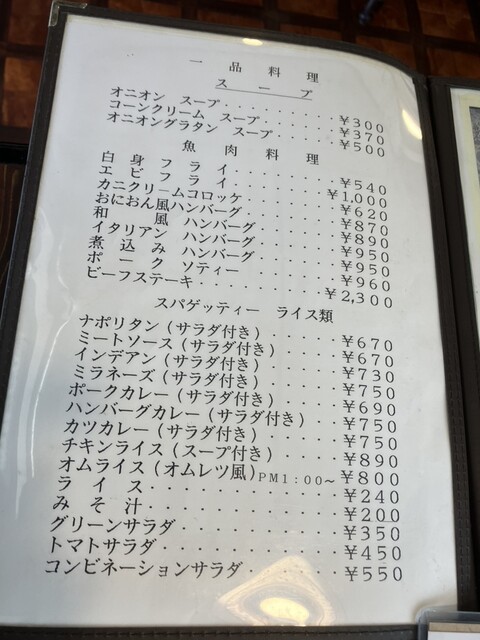 一品料理
スープ
オニオン スープ・・・・・・・・・¥300
コーンクリーム スープ・・・・・・¥370
オニオングラタン スープ・・・・・¥500
魚肉料理
白身フライ・・・・・・・・¥540
エビフライ・・・・・・・・¥1,000
カニクリームコロッケ・・・・・・¥620
おにおん風ハンバーグ・・・・・・¥870
和風 ハンバーグ・・・・・・¥890
イタリアン ハンバーグ・・・・・・¥950
煮込み ハンバーグ・・・・・・¥950
ポーク ソティー・・・・・・¥960
ビーフステーキ・・・・・・・・¥2,300
スパゲッティー ライス類
ナポリタン(サラダ付き)・・・・・¥670
ミートソース(サラダ付き)・・・・¥670
インデアン(サラダ付き)・・・・・¥730
ミラネーズ(サラダ付き)・・・・・¥750
ポークカレー(サラダ付き)・・・・¥690
ハンバーグカレー(サラダ付き)・・¥750
カツカレー(サラダ付き)・・・・・¥750
チキンライス(スープ付き)・・・・¥890
オムライス(オムレツ風)PM1:00~¥800
ライス・・・・・・・・・・・¥240
みそ汁・・・・・・・・・・・¥200
グリーンサラダ・・・・・・・・・¥350
トマトサラダ・・・・・・・・・・¥450
コンビネーションサラダ・・・・・¥550